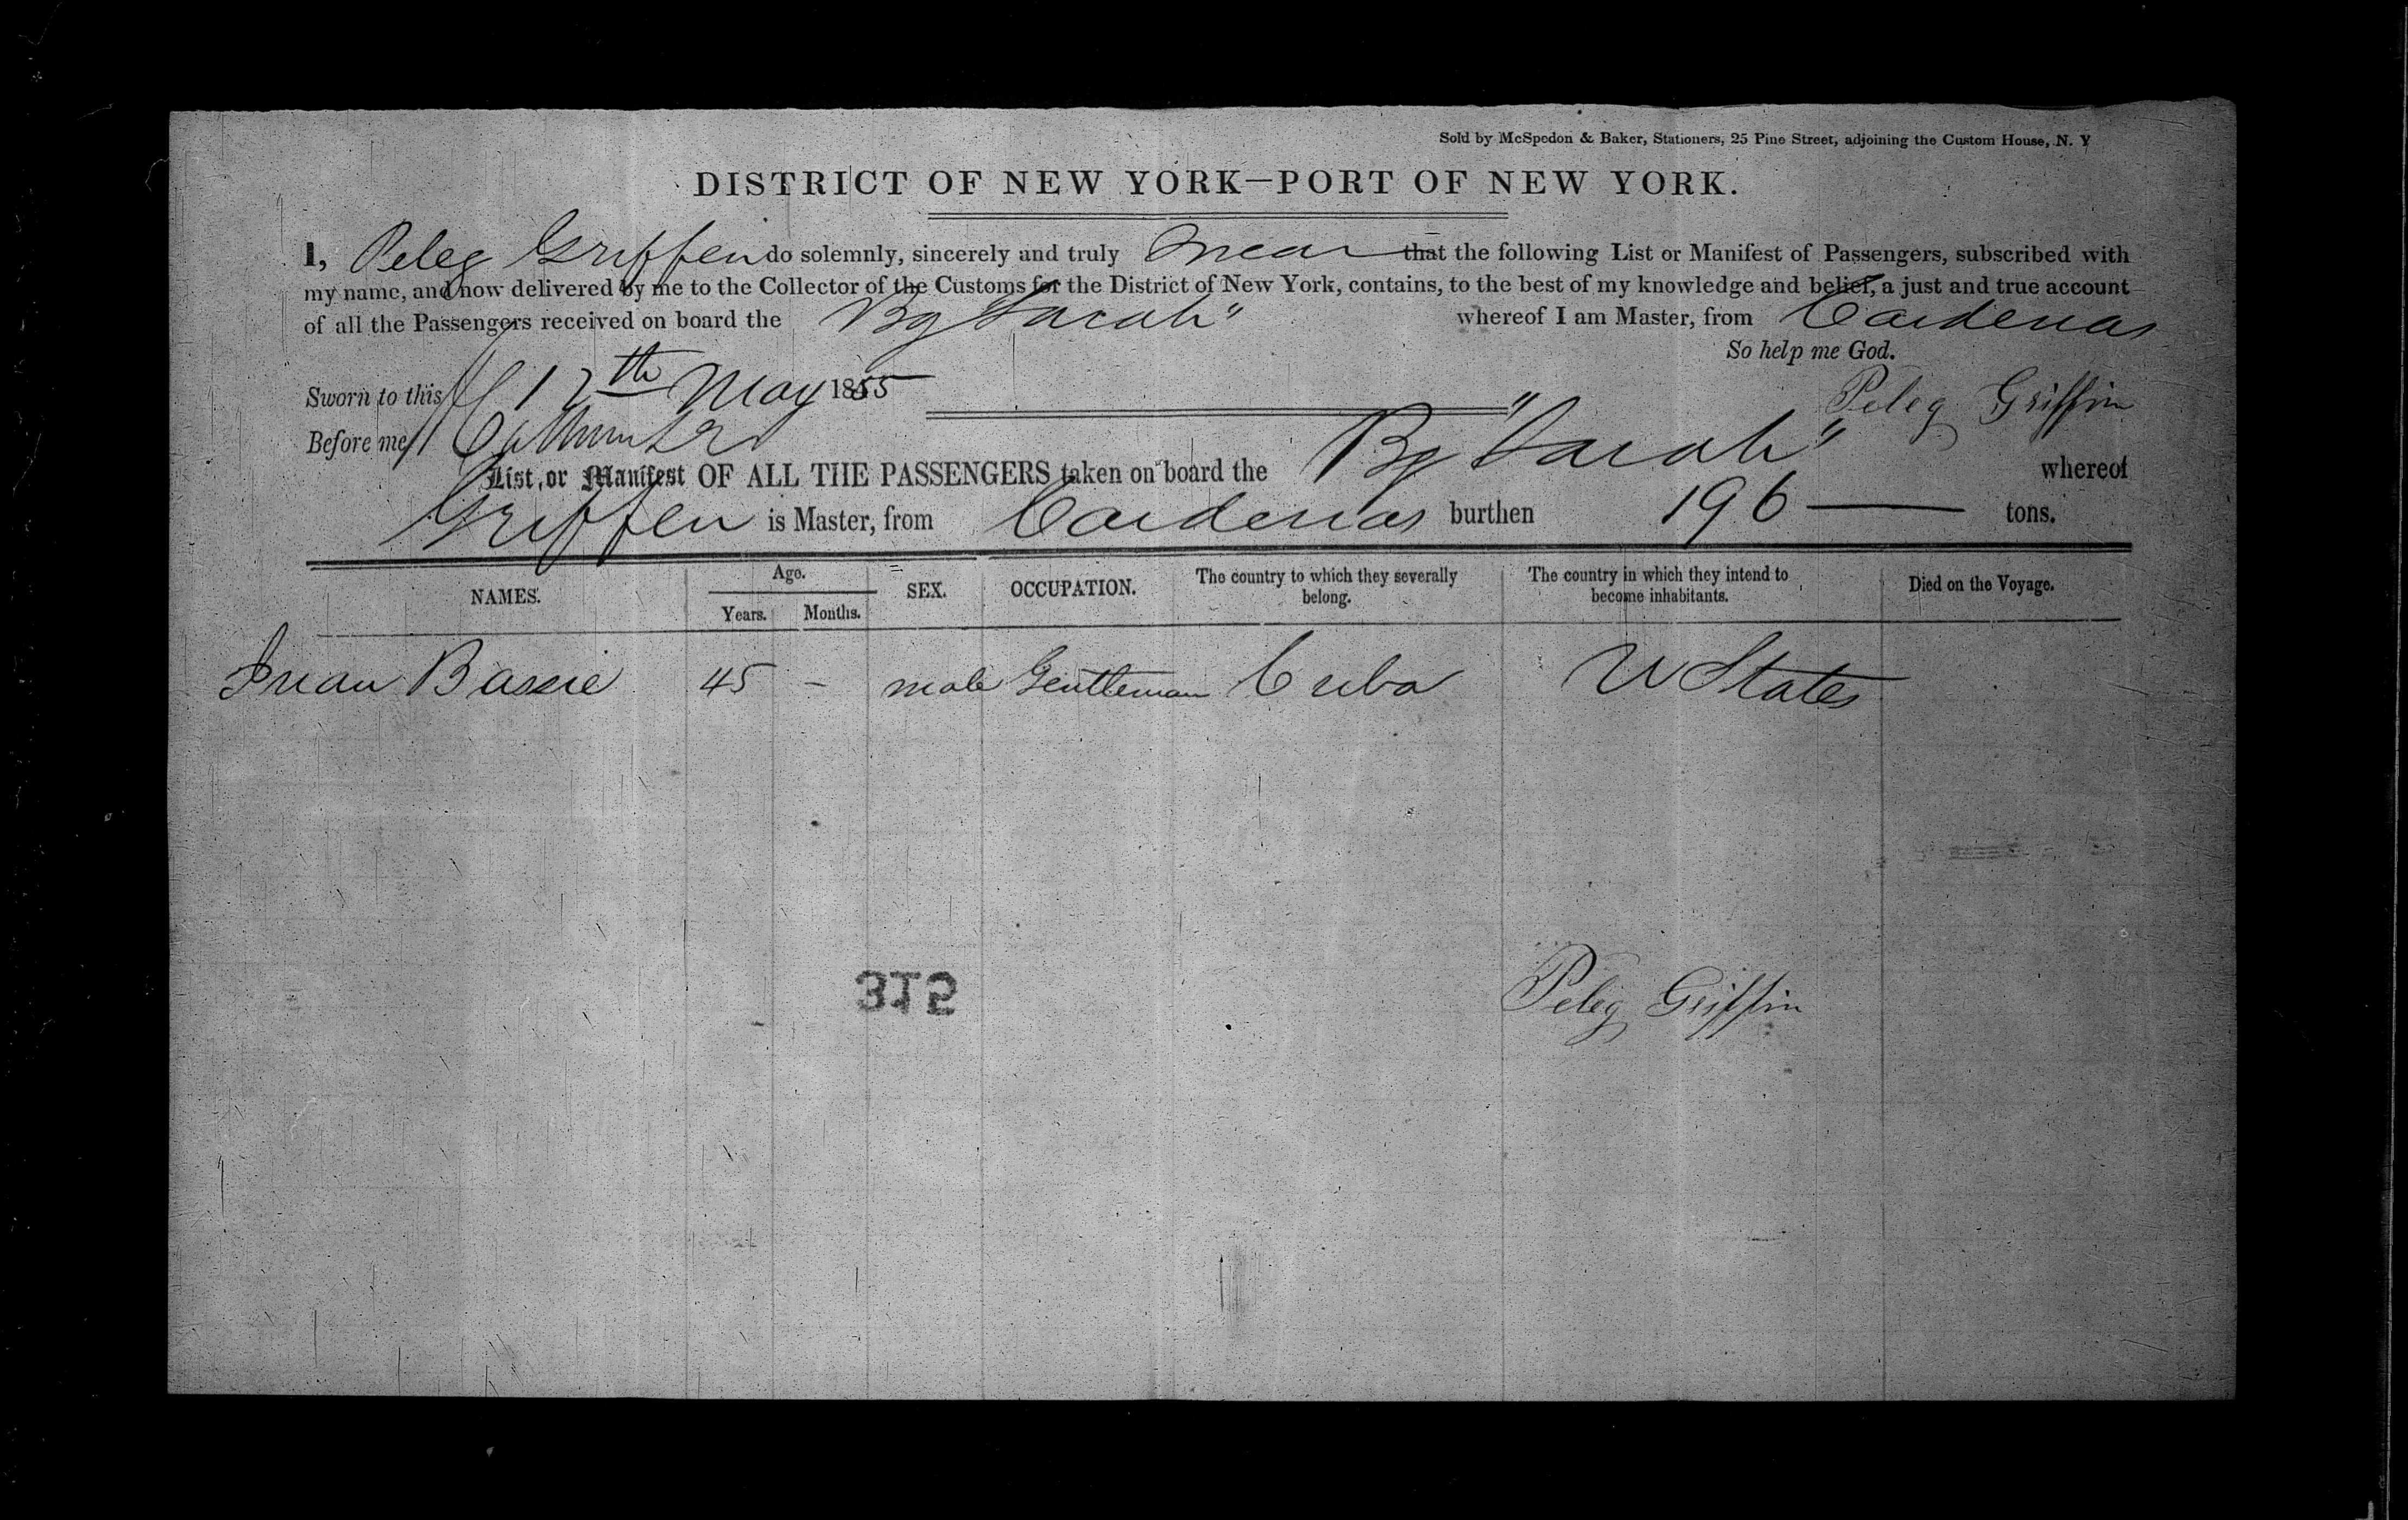 Sold by McSpedon & Baker, Stationers, 25 Pine Street, adjoining the Custom House, N. Y
DISTRICT OF NEW YORK—PORT OF NEW YORK.
I, Peleg Griffen do solemnly, sincerely and truly swear that the following List or Manifest of Passengers, subscribed with
my name, and now delivered by me to the Collector of the Customs for the District of New York, contains, to the best of my knowledge and belief, a just and true account
of all the Passengers received on board the Bg "Sarah" whereof I am Master, from Cardenas
So help me God.
Sworn to this 12th May 1855 Peleg Griffin
Before me
List, or Manifest OF ALL THE PASSENGERS taken on board the Bg "Sarah" whereof
Griffen is Master, from Cardenas burthen 196 — tons.
NAMES. Age. Years. Months. SEX. OCCUPATION. The country to which they severally belong. The country in which they intend to become inhabitants. Died on the Voyage.
Juan 45 - male Gentleman Cuba U States
315
Peleg Griffin